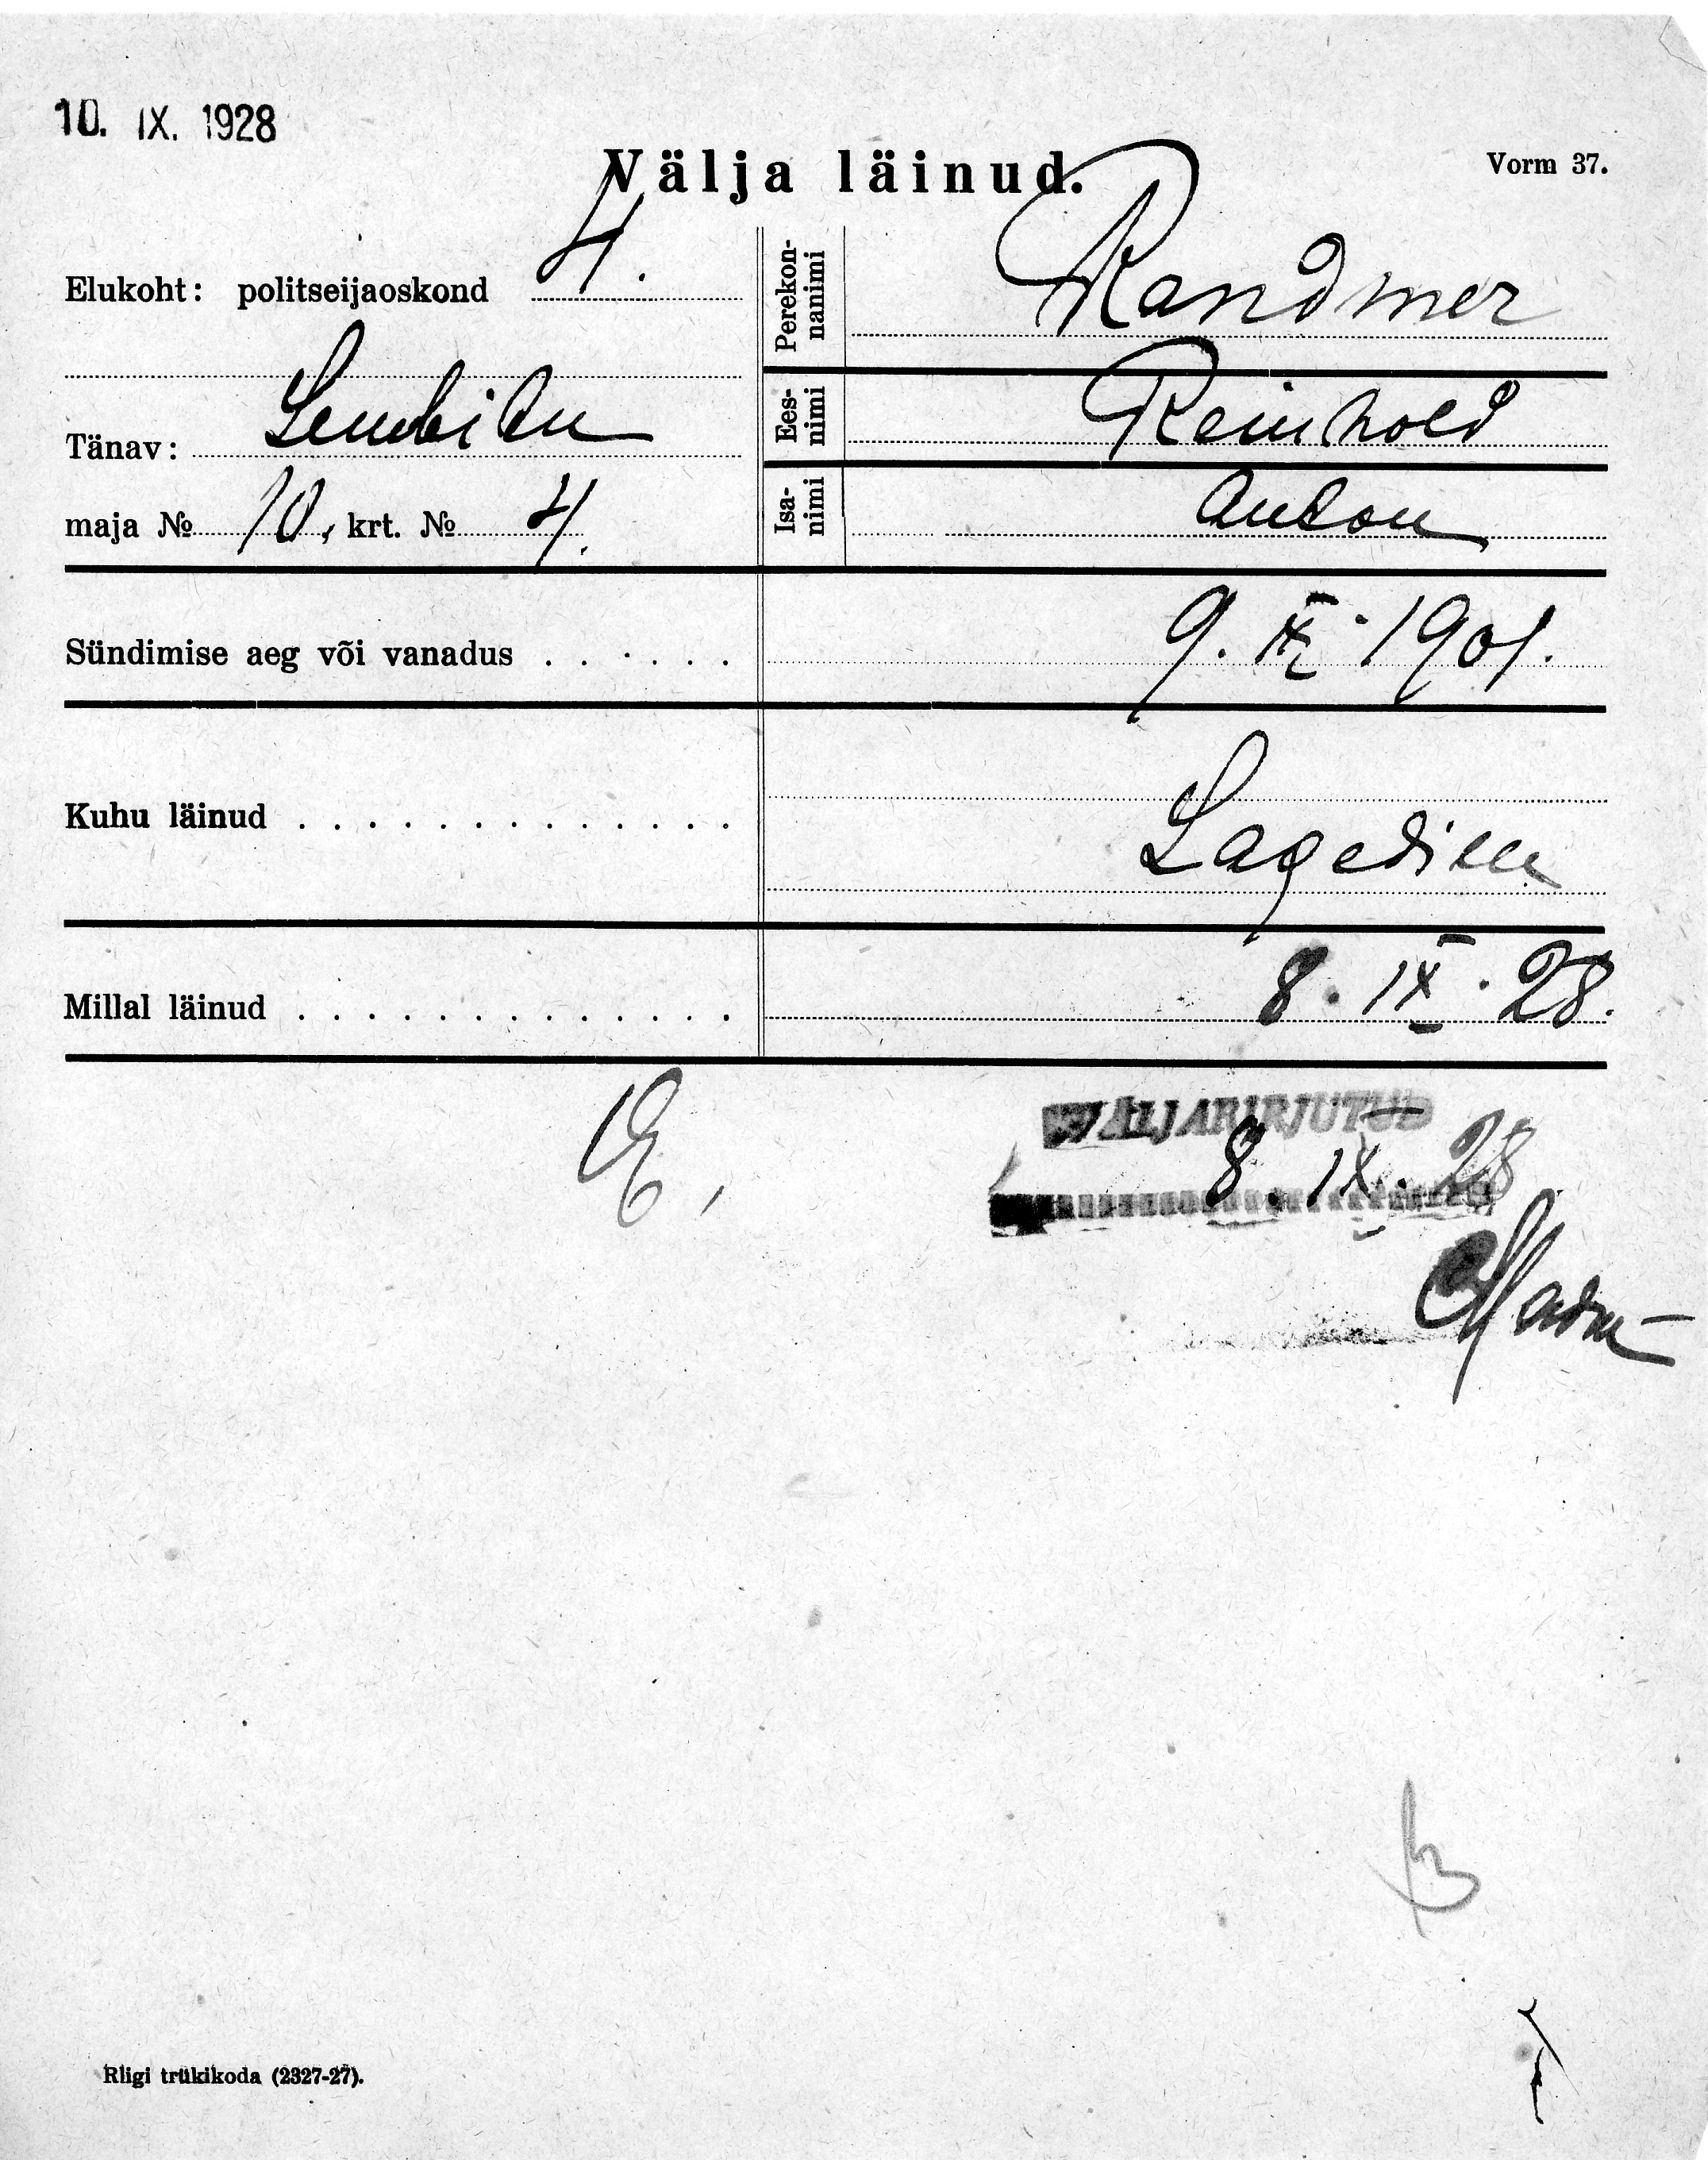 10. IX. 1928
Välja läinud.
Vorm 37.
Elukoht: politseijaoskond 4.
Tänav: Lembitu
maja № 10, krt. № 4.
Perekon-
nanimi Randmer
Ees-
nimi Reinhold
Isa-
nimi Anton
Sündimise aeg või vanadus . . . . . . 9. IX. 1901.
Kuhu läinud . . . . . . . . . . . . . Lagedile
Millal läinud . . . . . . . . . . . . . 8. IX. 28.
VÄLJAKIRJUTUD
8. IX. 28
Riigi trükikoda (2327-27).